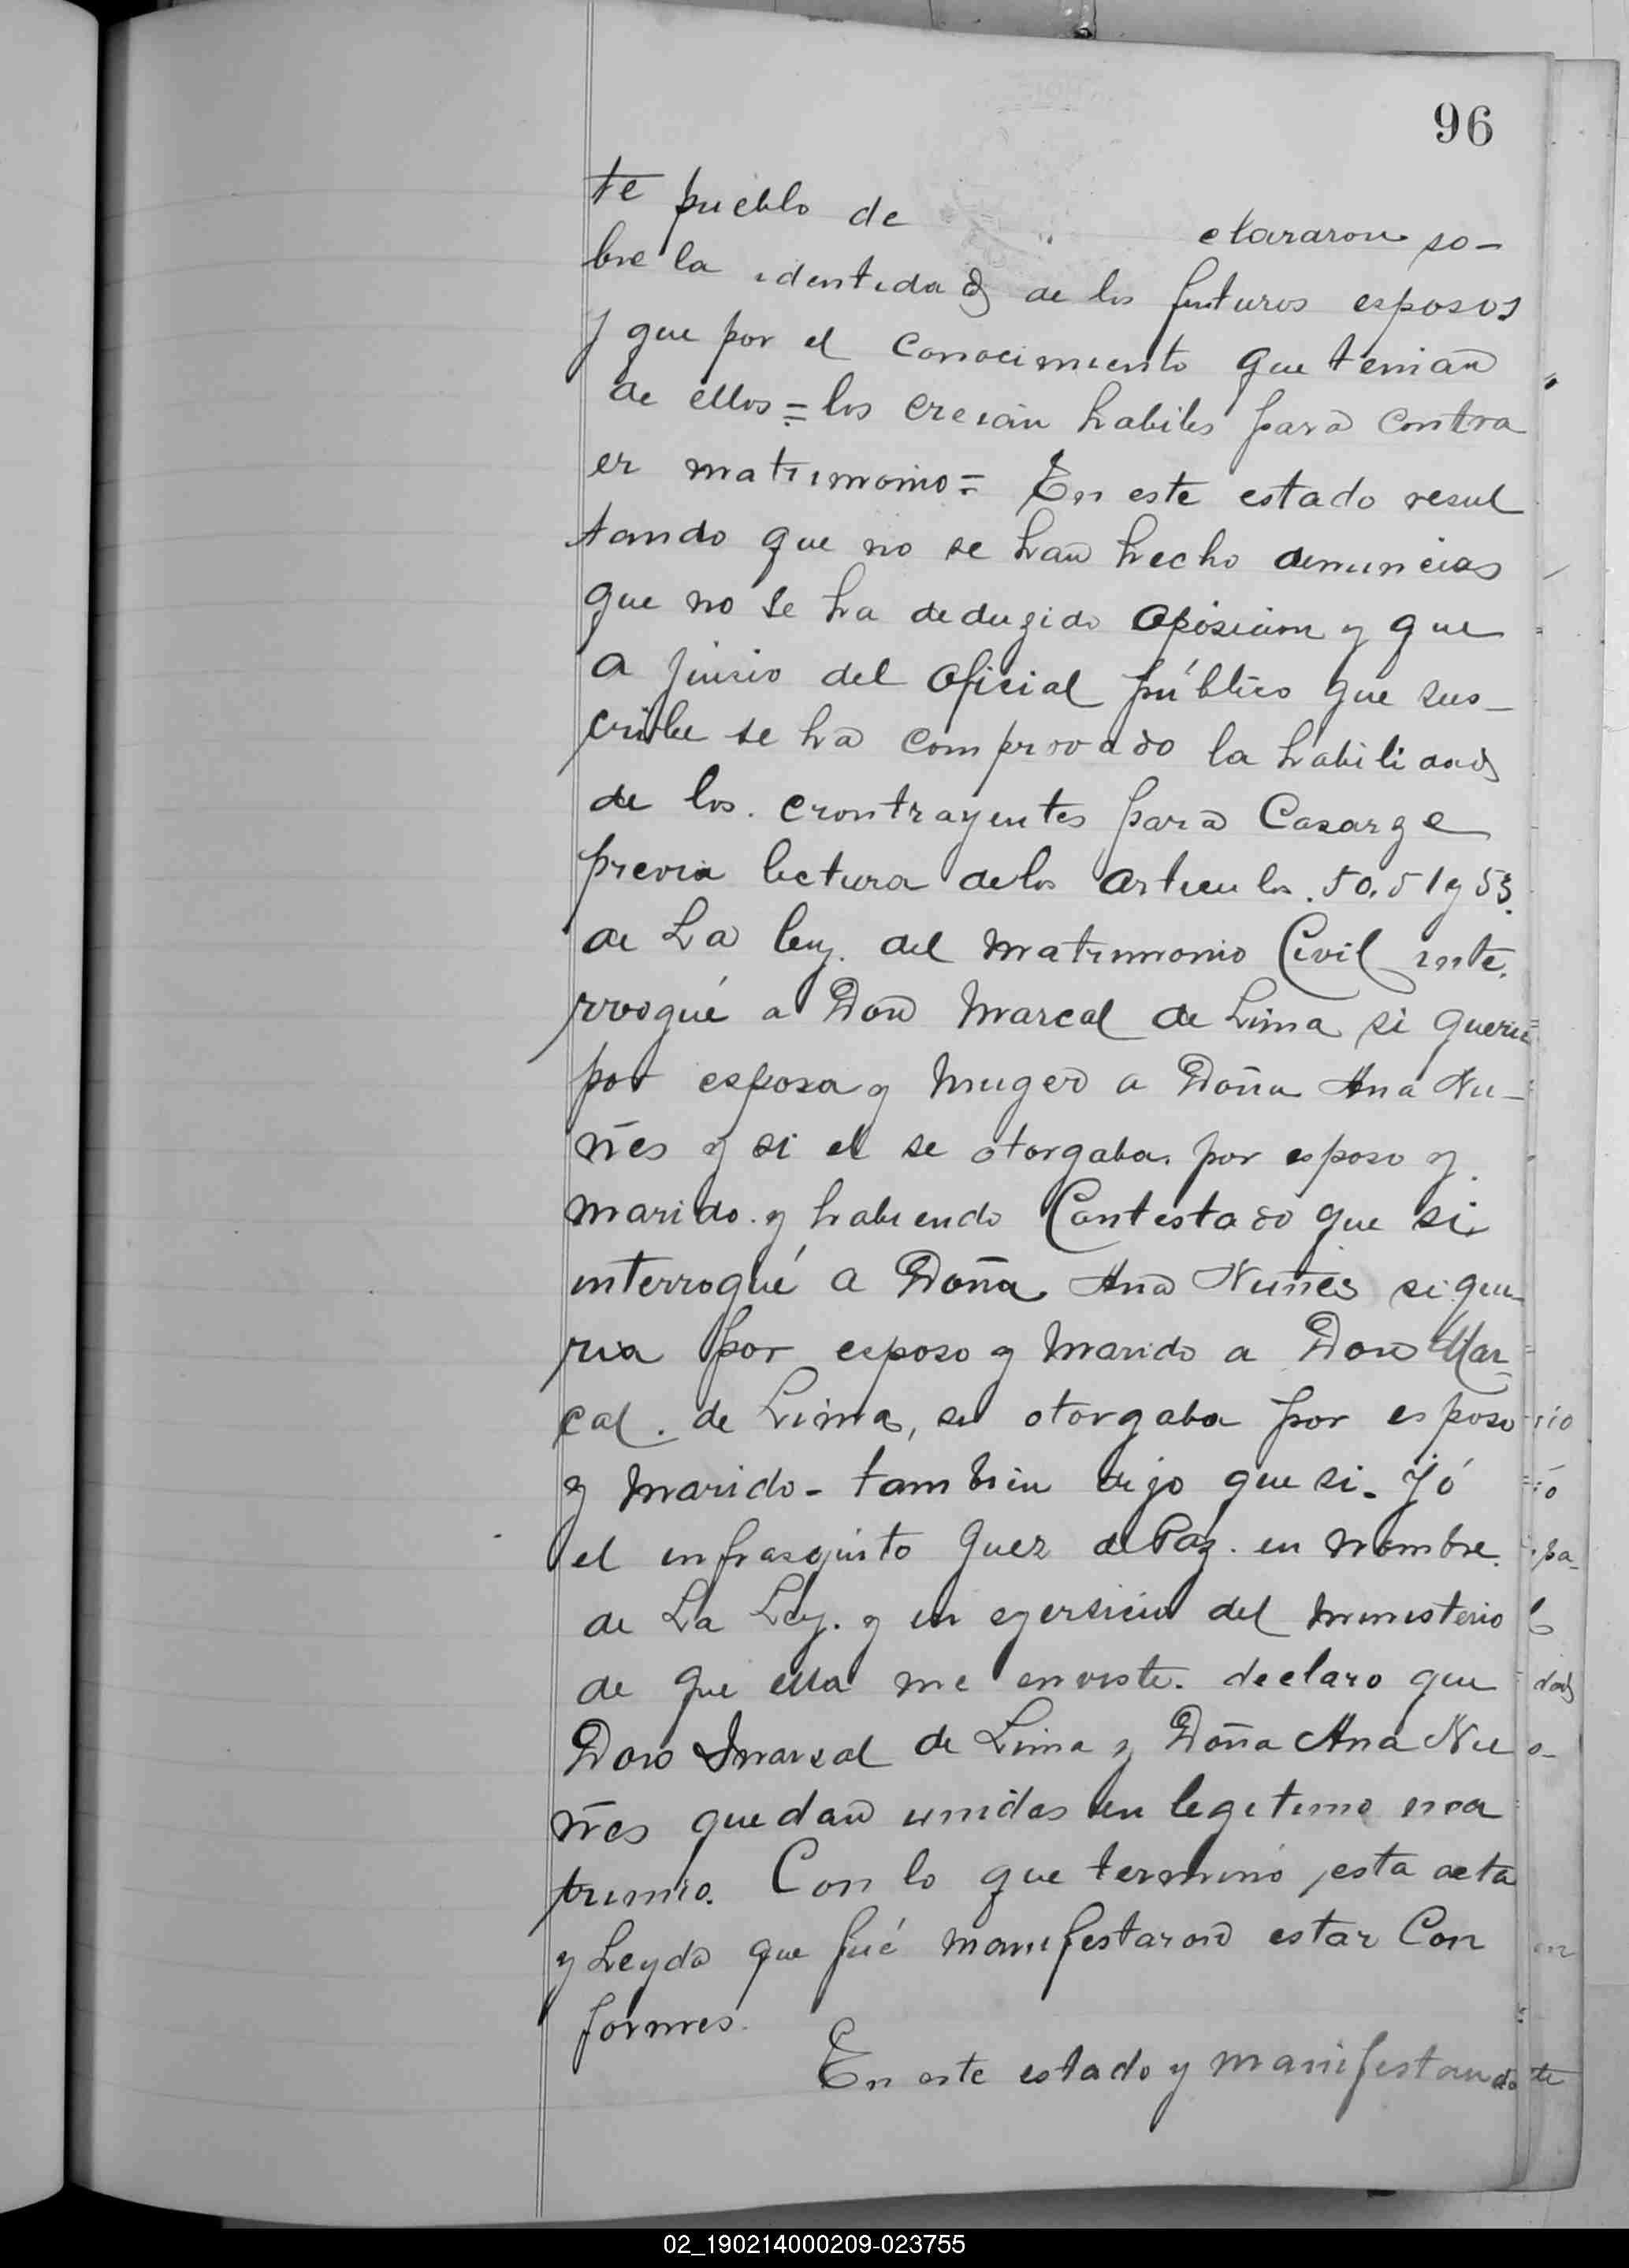 96
te pueblo de clararon so-
bre la identidad de los futuros esposos
y que por el conocimiento que tenian
de ellos = los creian habiles para contra
er matrimonio = En este estado resul
tando que no se han hecho denuncias
que no se ha deduzido oposicion y que
a juisio del oficial público que sus-
cribe se ha comprovado la habilidad
de los. crontrayentes para Casarze
previa lectura de los articulos. 50.51 y 53.
de La ley. del matrimonio Civil inte.
rrogué a Don Marcal de Lima si queria
por esposa y muger a Doña Ana Nu-
ñes y si el se otorgaba. por esposo y
marido. y habiendo Contestado que si
interrogué a Doña Ana Nuñes si que-
ria por esposo y marido a Don Mar-
cal. de Lima, se otorgaba por esposo
y marido - tambien dijo que si. Yó
el infrasquito Juez de Paz. en nombre.
de La Ley. y en egersicio del ministerio
de que ella me enviste. declaro que
Don Marsal de Lima y Doña Ana Nu
ñes quedan unidos en legitimo ma
trimio. Con lo que terminó esta acta
y Leyda que fué manifestaron estar Con
formes.
En este estado y manifestando